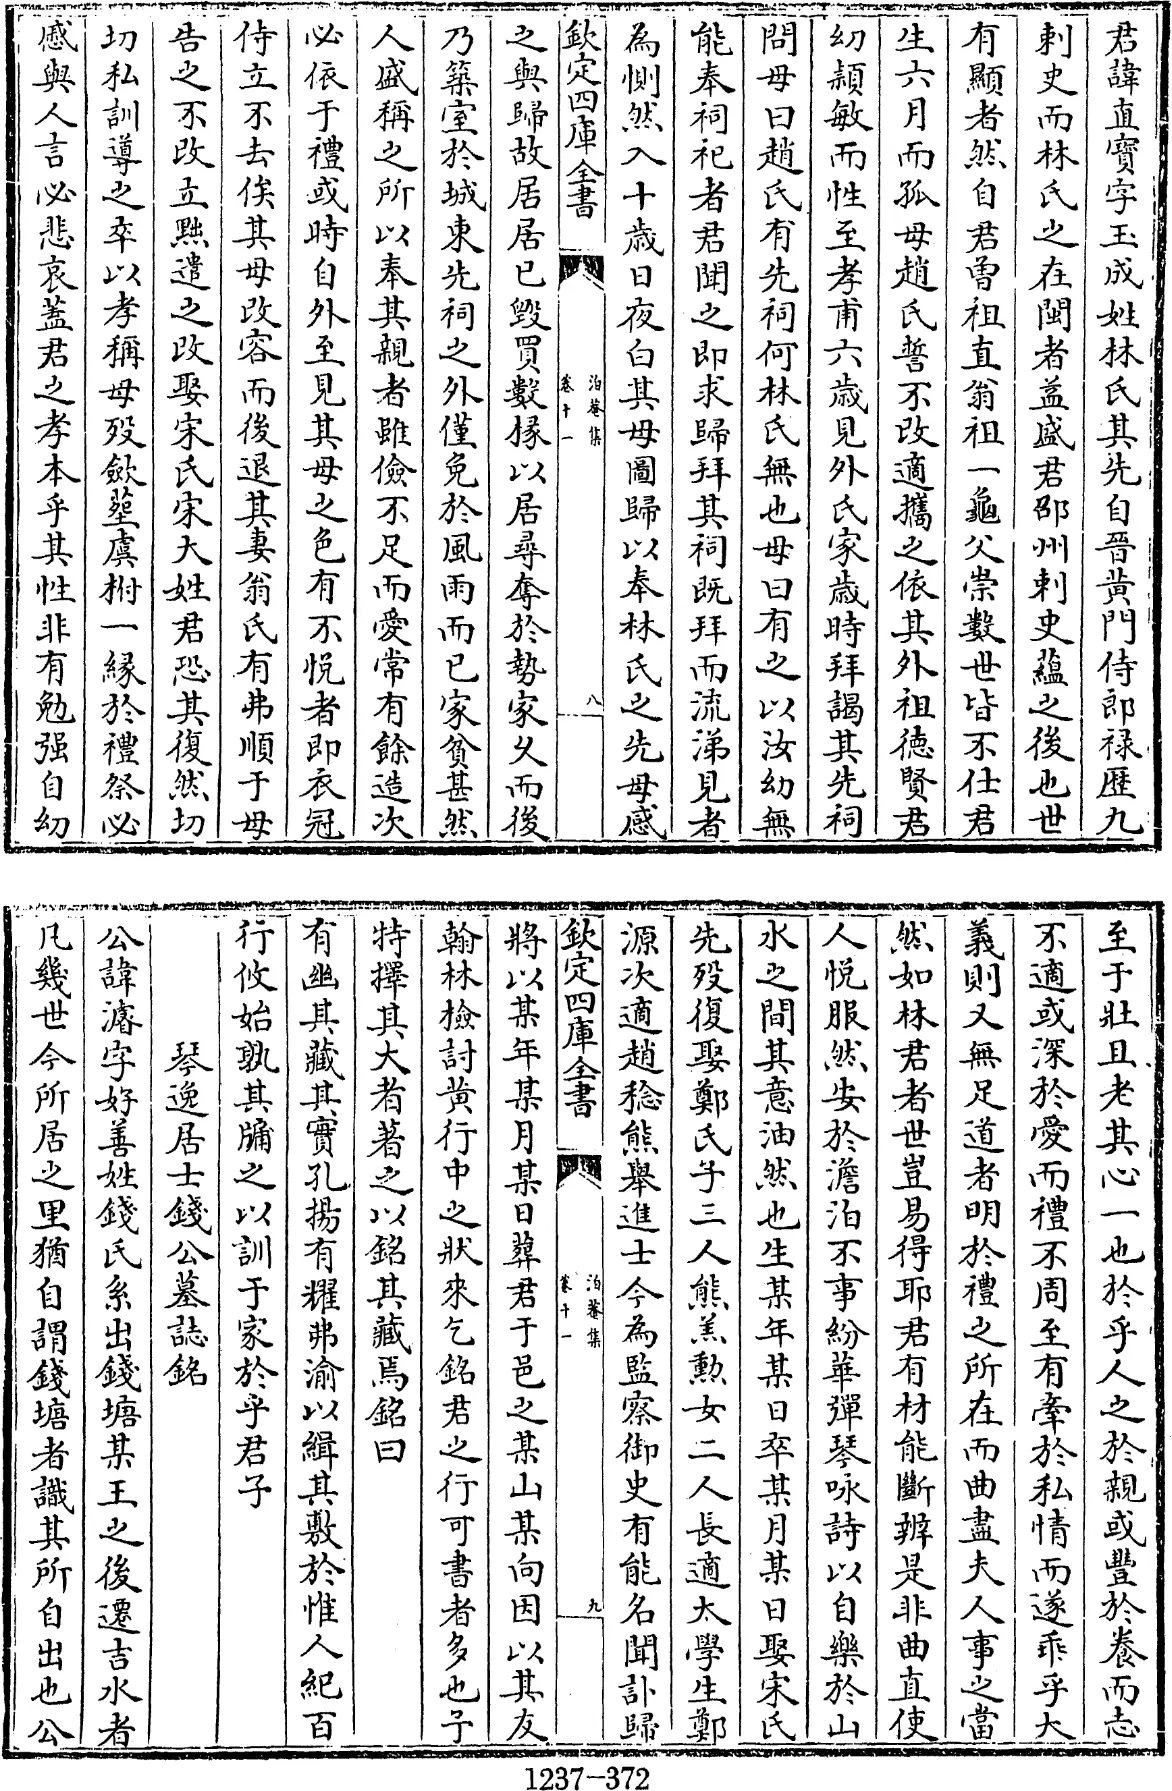 君諱直寳字玉成姓林氏其先自晉黄門侍郎禄歴九
刺史而林氏之在閩者益盛君邵州刺史藴之後也世
有顯者然自君曽祖直翁祖一龜父崇數世皆不仕君
生六月而孤母趙氏誓不改適攜之依其外祖徳賢君
幼頴敏而性至孝甫六歲見外氏家歲時拜謁其先祠
問母曰趙氏有先祠何林氏無也母曰有之以汝幼無
能奉祠祀者君聞之即求歸拜其祠既拜而流涕見者
為惻然入十歲日夜白其母圖歸以奉林氏之先母感
欽定四庫全書
泊菴集
卷十一
八
之與歸故居居已毁買數椽以居尋奪於勢家乆而後
乃築室於城東先祠之外僅免於風雨而已家貧甚然
人盛稱之所以奉其親者雖儉不足而愛常有餘造次
必依于禮或時自外至見其母之色有不悦者即衣冠
侍立不去俟其母改容而後退其妻翁氏有弗順于母
告之不改立黜遣之改娶宋氏宋大姓君恐其復然切
切私訓導之卒以孝稱母歿斂塟虞祔一縁於禮祭必
慼與人言必悲哀蓋君之孝本乎其性非有勉强自幼
至于壯且老其心一也於乎人之於親或豐於養而志
不適或深於愛而禮不周至有牽於私情而遂乖乎大
義則又無足道者明於禮之所在而曲盡夫人事之當
然如林君者世豈易得耶君有材能斷辨是非曲直使
人悦服然安於澹泊不事紛華彈琴咏詩以自樂於山
水之間其意油然也生某年某日卒某月某日娶宋氏
先歿復娶鄭氏子三人熊羔勲女二人長適太學生鄭
源次適趙稔熊舉進士今為監察御史有能名聞訃歸
欽定四庫全書
泊菴集
卷十一
九
將以某年某月某日葬君于邑之某山某向因以其友
翰林檢討黄行中之狀來乞銘君之行可書者多也予
特擇其大者著之以銘其藏焉銘曰
有幽其藏其實孔揚有耀弗渝以緝其敷於惟人紀百
行攸始孰其牖之以訓于家於乎君子
琴逸居士錢公墓誌銘
公諱濬字好善姓錢氏系出錢塘某王之後遷吉水者
凡幾世今所居之里猶自謂錢塘者識其所自出也公
1237-372